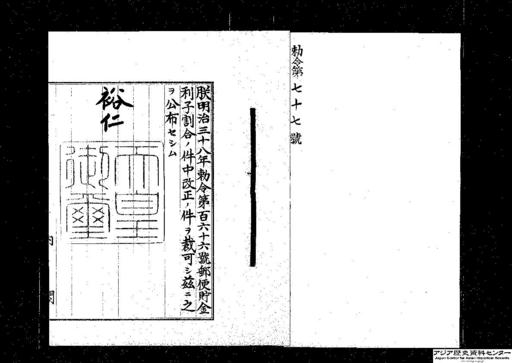 勅令第七十七號
朕明治三十八年勅令第百六十六號郵便貯金
利子割合ノ件中改正ノ件ヲ裁可シ茲ニ之
ヲ公布セシム
裕仁
天皇御璽
内閣
アジア歴史資料センター
Japan Center for Asian Historical Records